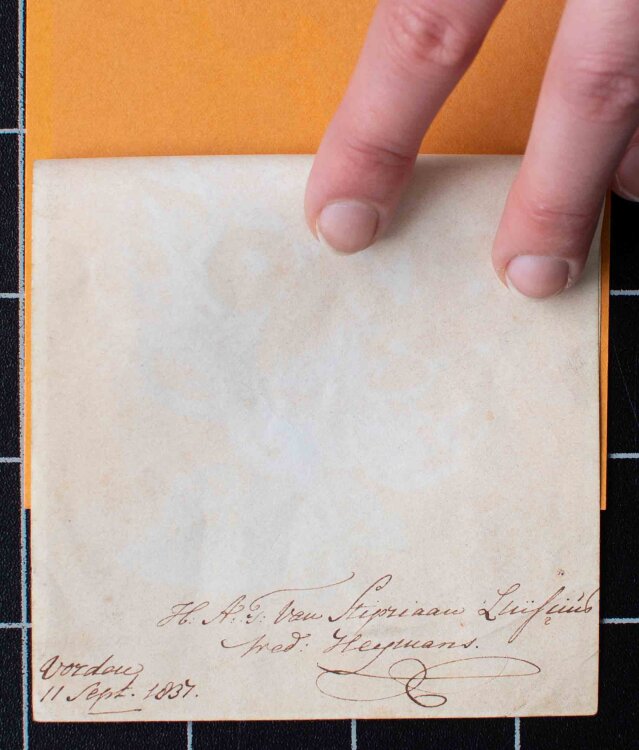 H. A. J. Van Stipriaan Luïsçius
Pred: Heymans.
Vorden
11 Sept. 1837.